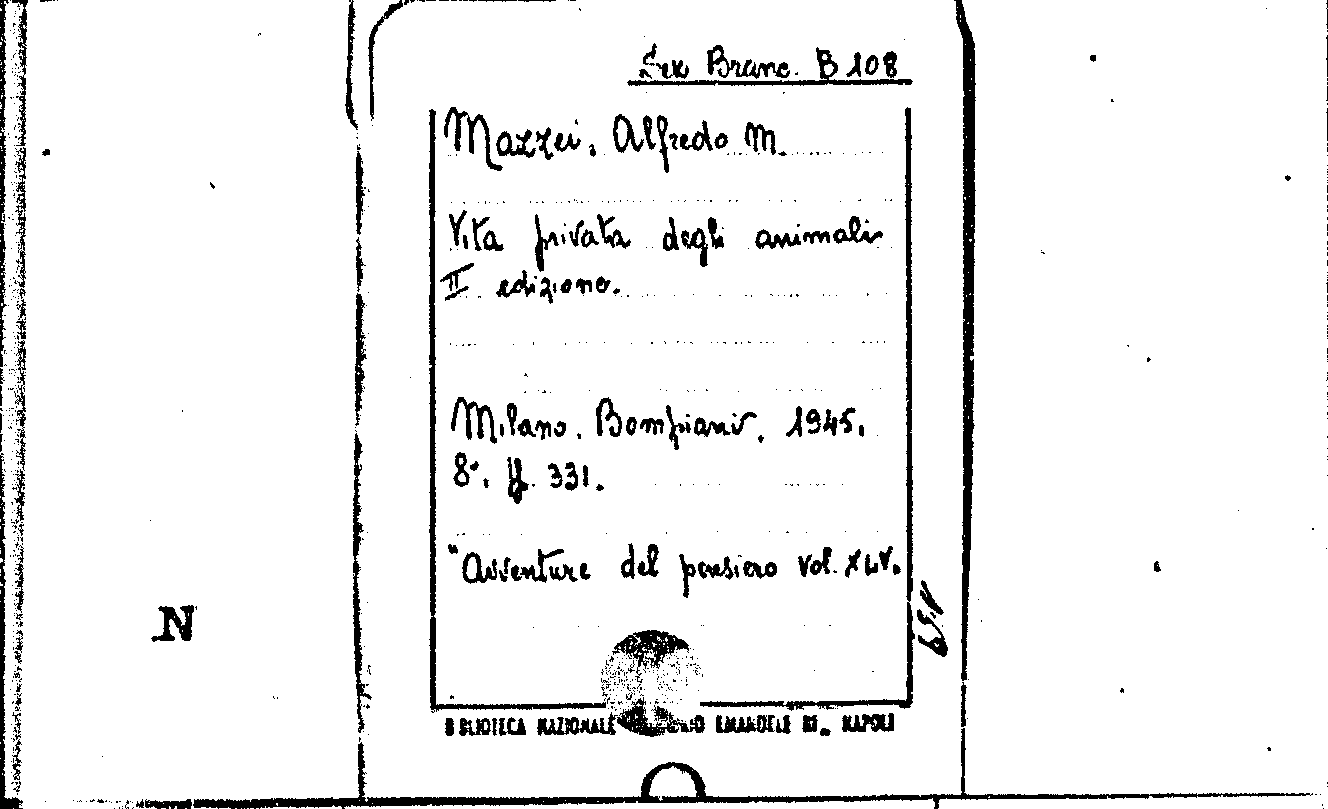 Sex Branc. B 108
Mazzei, Alfredo M.
Vita privata degli animali
II edizione.
Milano. Bompiani. 1945.
8°. pp. 331.
"Avventure del pensiero vol. XLV.
N
BIBLIOTECA NAZIONALE EMANUELE III. NAPOLI